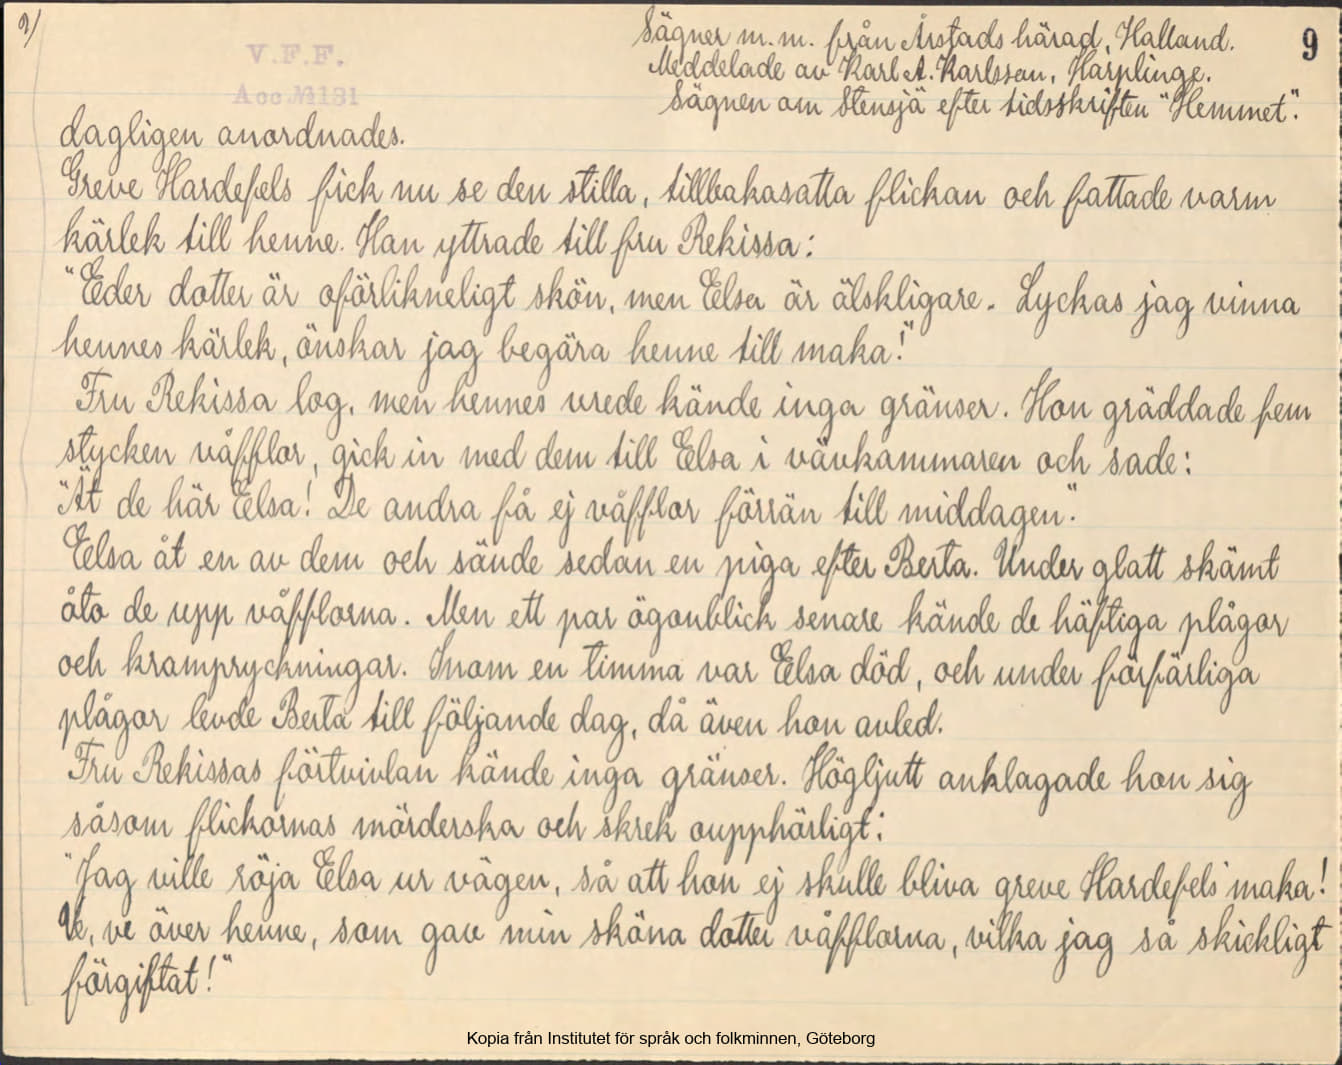 2/
Sägner m.m. från Årstads härad, Halland.
9
V.F.F.
Acc.№131
Meddelade av Karl A. Karlsson, Harplinge.
Sägnen om Stensjä efter tidsskriften "Hemmet".
dagligen anordnades.
Greve Hardefels fick nu se den stilla, tillbakasatta flickan och fattade varm
kärlek till henne. Han yttrade till fru Rekissa:
"Eder dotter är oförlikneligt skön, men Elsa är älskligare. Lyckas jag vinna
hennes kärlek, önskar jag begära henne till maka!"
Fru Rekissa log, men hennes vrede kände inga gränser. Hon gräddade fem
stycken våfflor, gick in med dem till Elsa i vävkammaren och sade:
"Ät de här Elsa! De andra få ej våfflor förrän till middagen".
Elsa åt en av dem och sände sedan en piga efter Berta. Under glatt skämt
åto de upp våfflorna. Men ett par ögonblick senare kände de häftiga plågor
och krampryckningar. Inom en timma var Elsa död, och under förfärliga
plågor levde Berta till följande dag, då även hon avled.
Fru Rekissas förtvivlan kände inga gränser. Högljutt anklagade hon sig
såsom flickornas mörderska och skrek oupphörligt:
"Jag ville röja Elsa ur vägen, så att hon ej skulle bliva greve Hardefels' maka!
Ve, ve över henne, som gav min sköna dotter våfflorna, vilka jag så skickligt
förgiftat!"
Kopia från Institutet för språk och folkminnen, Göteborg